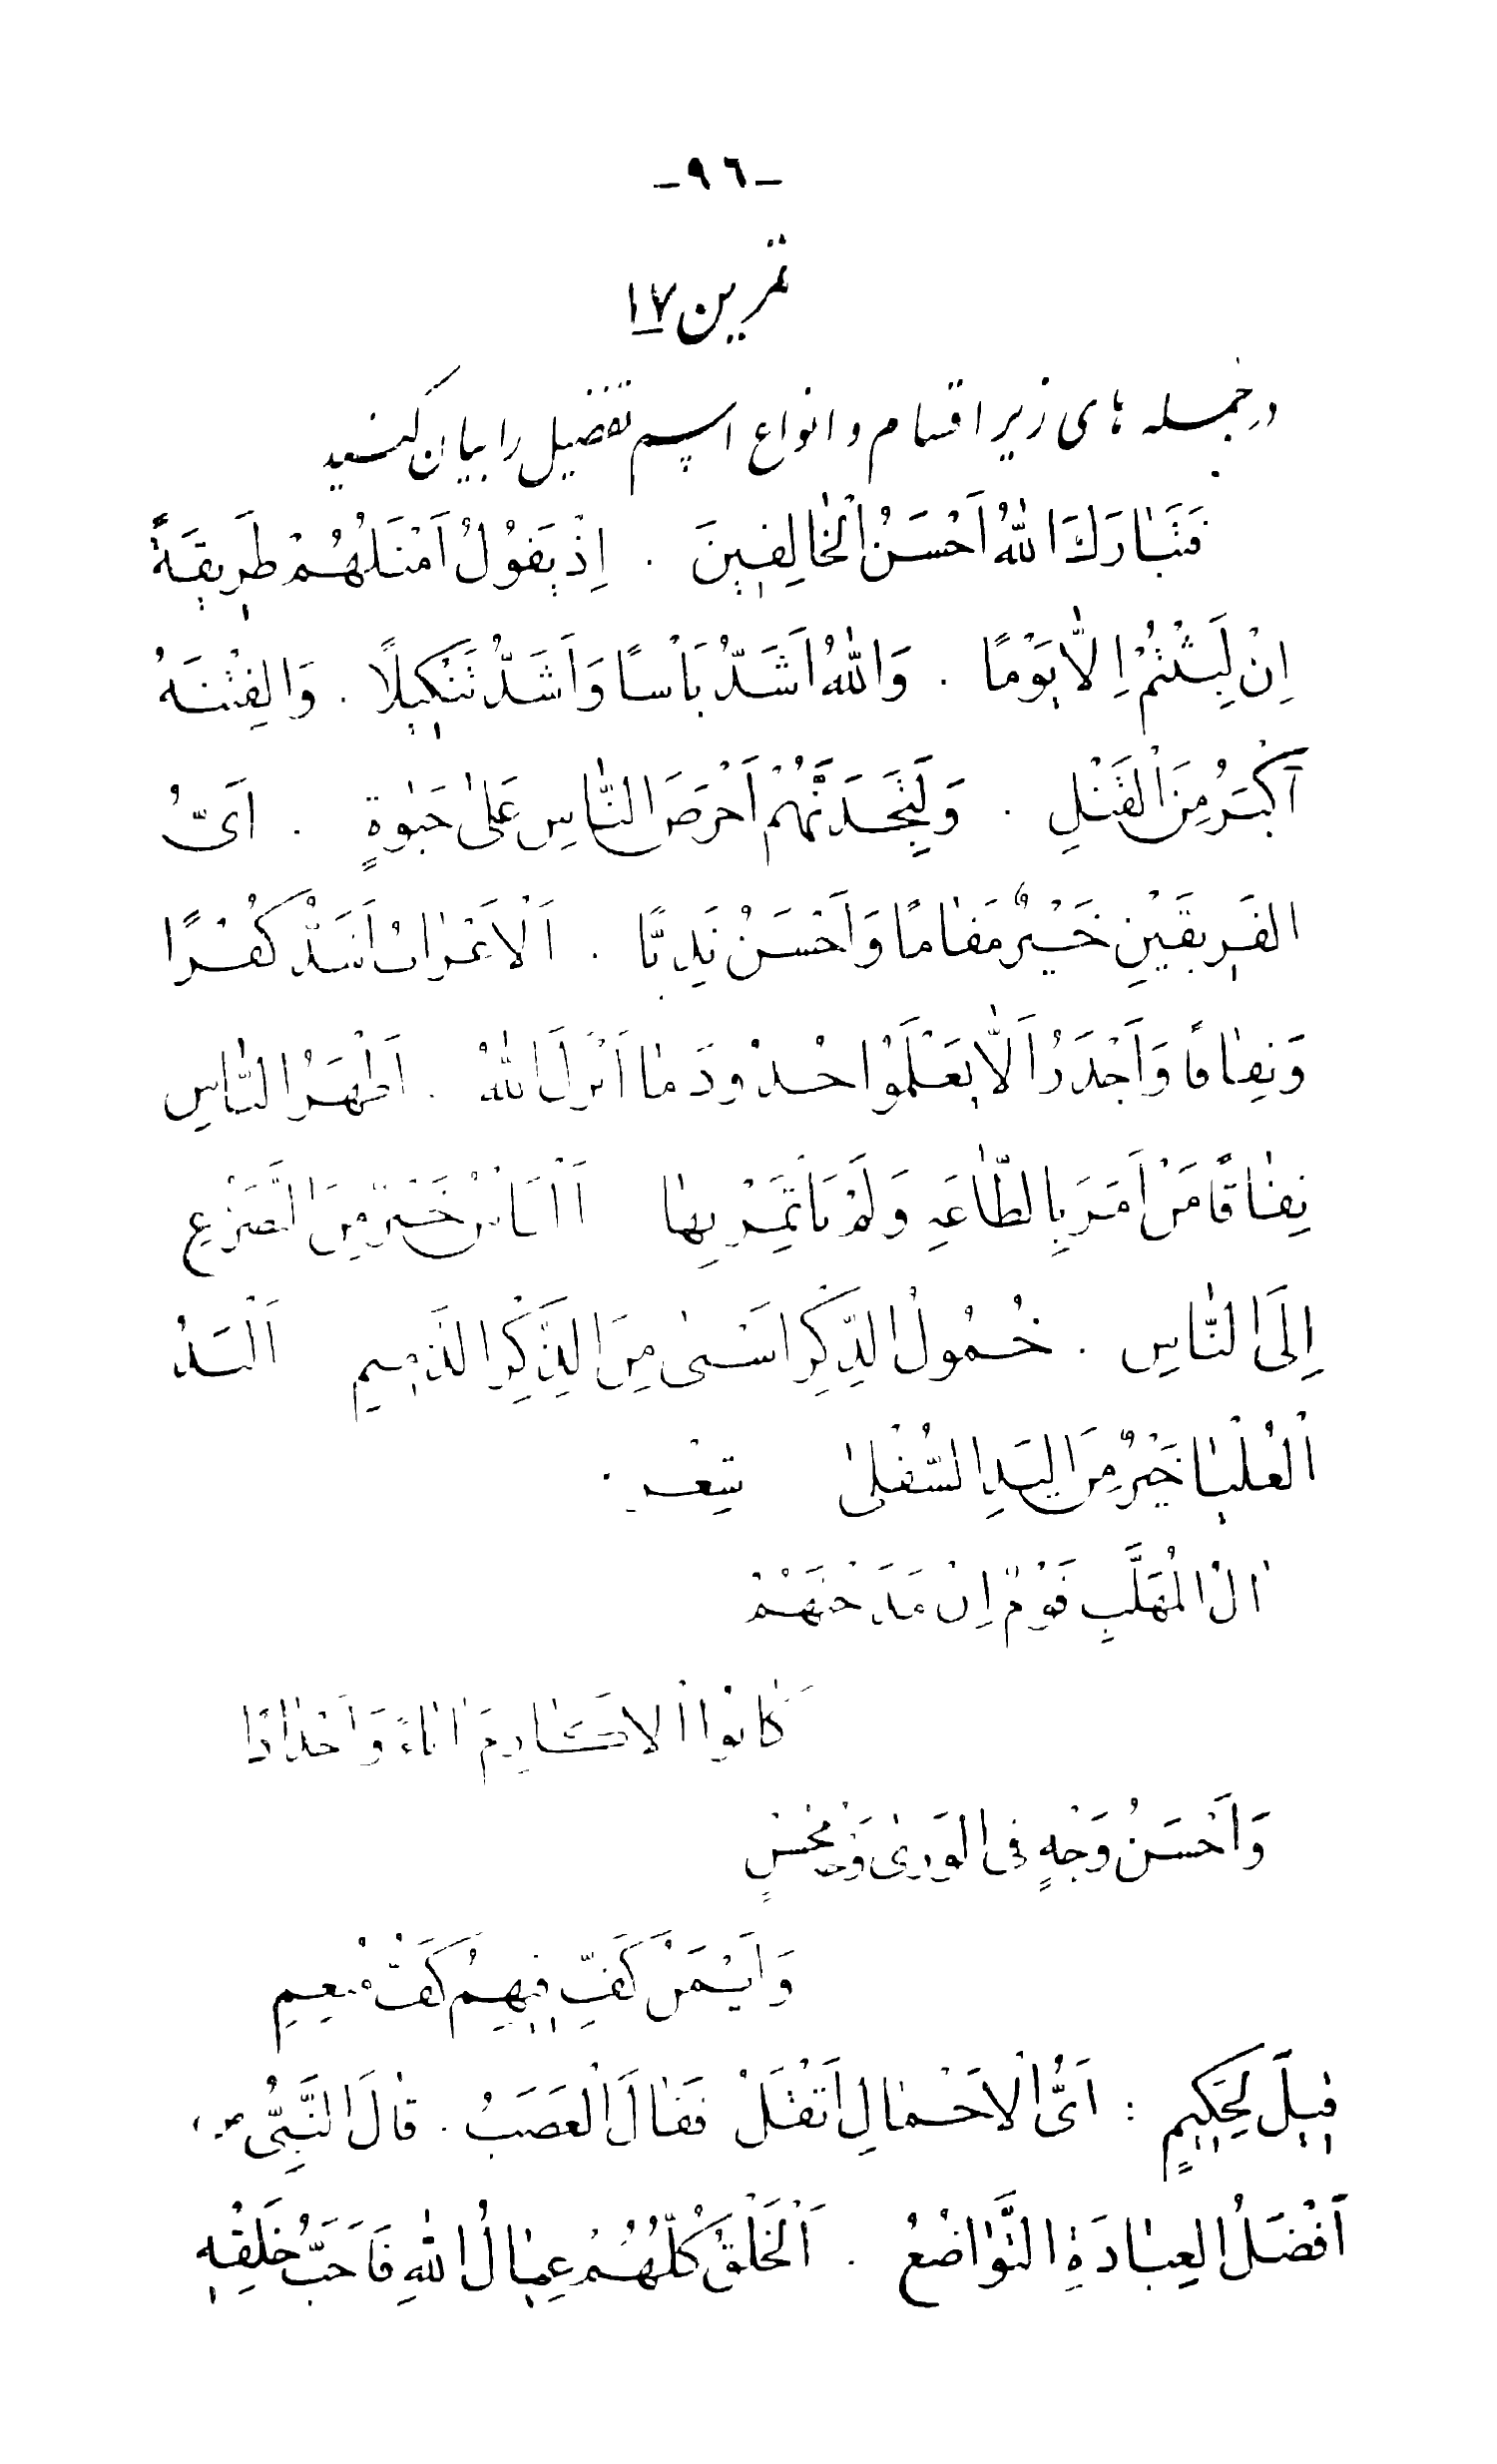 -٩٦-
تمرین ١٧
در جمله های زیر اقسام و انواع اسم تفضیل را بیان کنید
فَتَبٰارَكَ اللّٰهُ اَحْسَنُ الْخٰالِقِينَ . اِذْ يَقُولُ اَمْثَلُهُمْ طَرِيقَةً
اِنْ لَبِثْتُمْ اِلّٰا يَوْمًا . وَاللّٰهُ اَشَدُّ بَأْسًا وَاَشَدُّ تَنْكِيلًا . وَالفِتْنَةُ
اَكْبَرُ مِنَ الْقَتْلِ . وَلَتَجِدَنَّهُمْ اَحْرَصَ النّٰاسِ عَلىٰ حَيٰوةٍ . اَىُّ
الفَرِيقَيْنِ خَيْرٌ مَقٰامًا وَاَحْسَنُ نَدِيًّا . اَلْاَعْرٰابُ اَشَدُّ كُفْرًا
وَنِفٰاقًا وَاَجْدَرُ اَلّٰا يَعْلَمُوْا حُدُودَ مٰا اَنْزَلَ اللّٰهُ . اَظْهَرُ النّٰاسِ
نِفٰاقًا مَنْ اَمَرَ بِالطّٰاعَةِ وَلَمْ يَأْتَمِرْ بِهٰا اَلْيَأْسُ خَيْرٌ مِنَ التَّضَرُّعِ
اِلَى النّٰاسِ . خُمُولُ الذِّكْرِ اَسْنىٰ مِنَ الذِّكْرِ الذَّمِيمِ اَلْيَدُ
الْعُلْيٰا خَيْرٌ مِنَ اليَدِ السُّفْلىٰ شِعْر :
اٰلُ الْمُهَلَّبِ قَوْمٌ اِنْ مَدَحْتَهُمْ
كٰانُوا الْاَكٰارِمَ اٰبٰاءً وَاَجْدٰادًا
وَاَحْسَنُ وَجْهٍ فى الوَرىٰ وَجْهُ مُحْسِنٍ
وَاَيْمَنُ كَفٍّ فِيهِمُ كَفُّ مُنْعِمِ
قِيلَ لِحَكِيمٍ : اَىُّ الْاَحْمٰالِ اَثْقَلُ فَقٰالَ الْغَضَبُ . قٰالَ النَّبِىُّ ص ،
اَفْضَلُ العِبٰادَةِ التَّوٰاضُعُ . اَلْخَلْقُ كُلُّهُمْ عِيٰالُ اللّٰهِ فَاَحَبُّ خَلْقِهِ